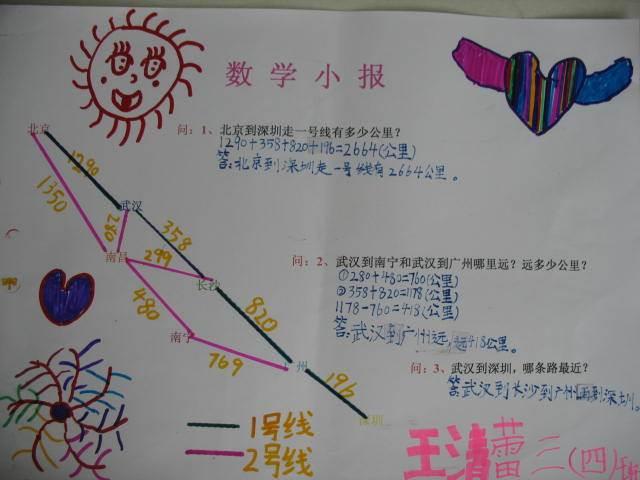 数学小报
北京
问：1、北京到深圳走一号线有多少公里？
1290+358+820+196=2664(公里)
答：北京到深圳走一号线有2664公里。
1290
1350
武汉
280
358
南昌
299
长沙
问：2、武汉到南宁和武汉到广州哪里远？远多少公里？
①280+480=760(公里)
②358+820=1178(公里)
1178-760=418(公里)
答：武汉到广州远，远418公里。
480
820
南宁
769
广州
196
深圳
问：3、武汉到深圳，哪条路最近？
答：武汉到长沙到广州再到深圳。
1号线
2号线
王清蕾三(四)班